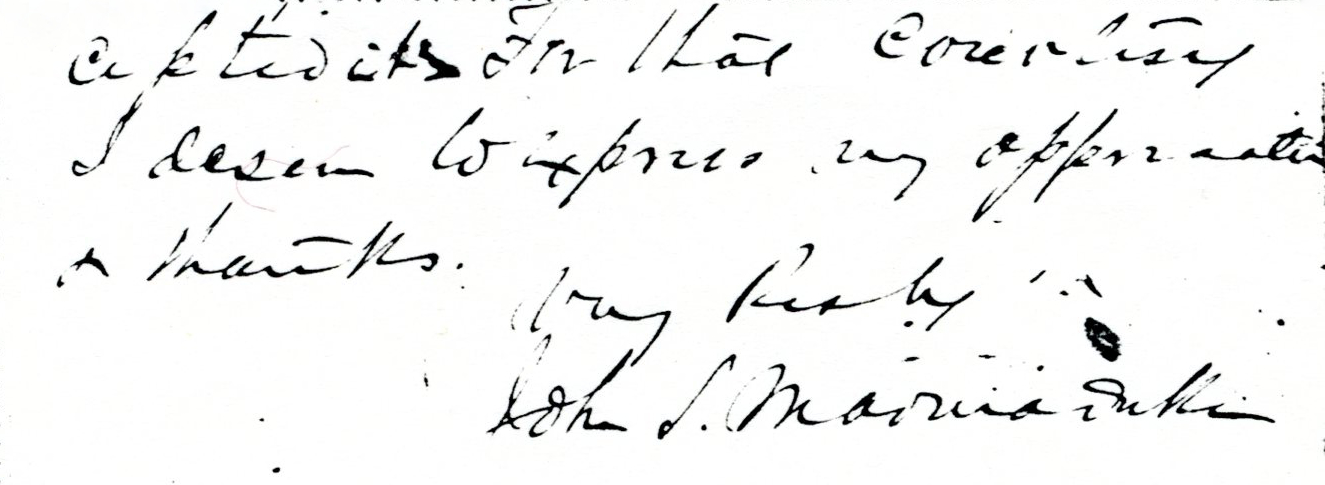 for that Courtesy
I desire to express my appreciation
& thanks.
Very Resply
John S. Marmaduke